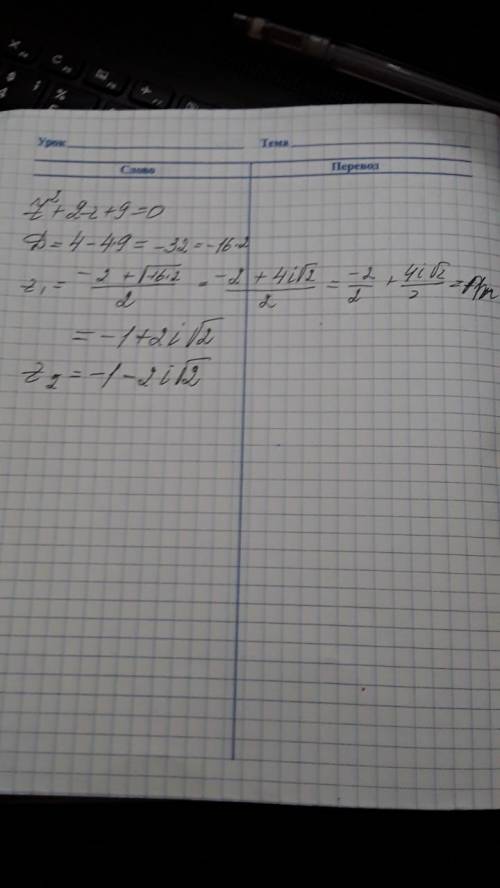 Урок Тема
Слово Перевод
z²+2z+9=0
D=4-4·9=-32=-16·2
z₁=(-2+√-16·2)/2=(-2+4i√2)/2=-2/2+4i√2/2=
=-1+2i√2
z₂=-1-2i√2